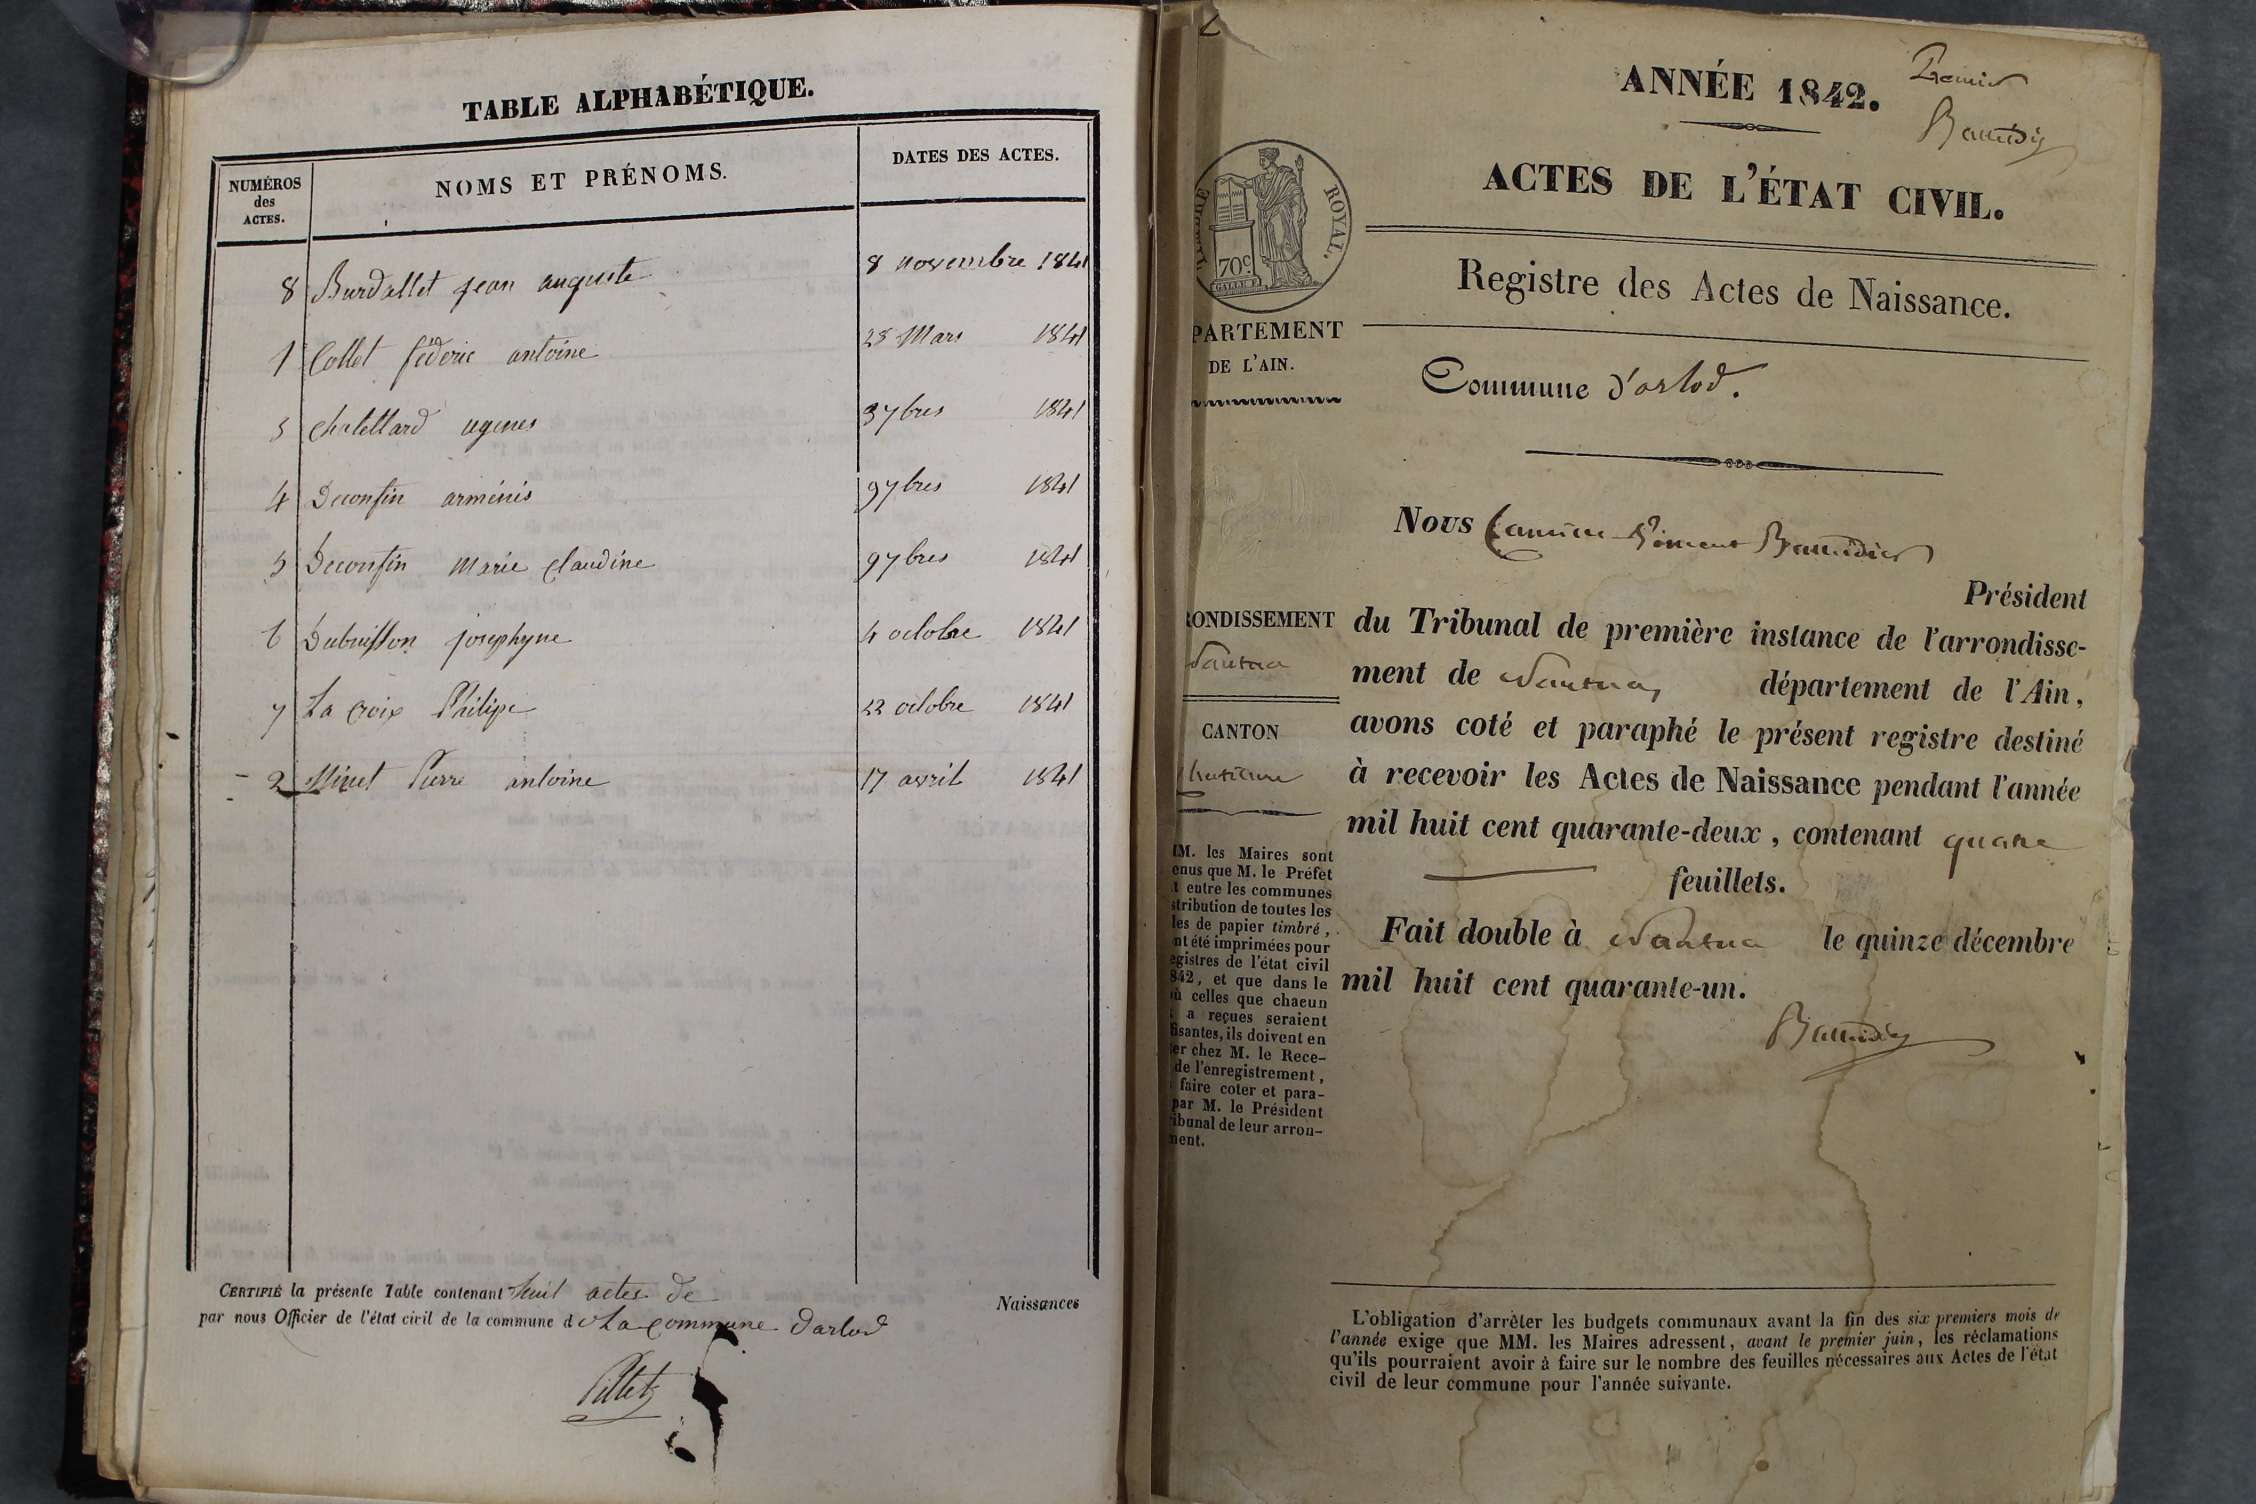 TABLE ALPHABÉTIQUE.
NUMÉROS
des
ACTES.
NOMS ET PRÉNOMS.
DATES DES ACTES.
8 Burdallet jean auguste 8 novembre 1841
1 Collet féderic antoine 28 Mars 1841
3 chalettard ugenes 3 7bres 1841
4 Deconfin arménis 9 7bres 1841
5 Deconfin Marie Claudine 9 7bres 1841
6 Dubuisson josephyne 4 octobre 1841
7 La croix Philipe 22 octobre 1841
2 Minet Pierre antoine 17 avril 1841
CERTIFIÉ la présente Table contenant huit actes de Naissances
par nous Officier de l'état civil de la commune d La commune darlod
Pillet
ANNÉE 1842.
Premier
ACTES DE L'ÉTAT CIVIL.
TIMBRE ROYAL.
70c
Registre des Actes de Naissance.
PARTEMENT
DE L'AIN.
Commune d'arlod.
Nous
Président
RONDISSEMENT
Nantua
du Tribunal de première instance de l'arrondisse-
ment de Nantua, département de l'Ain,
CANTON
avons coté et paraphé le présent registre destiné
à recevoir les Actes de Naissance pendant l'année
mil huit cent quarante-deux, contenant quatre
feuillets.
Fait double à Nantua le quinze décembre
mil huit cent quarante-un.
MM. les Maires sont
enus que M. le Préfet
t entre les communes
stribution de toutes les
les de papier timbré,
nt été imprimées pour
egistres de l'état civil
842, et que dans le
où celles que chacun
a reçues seraient
fisantes, ils doivent en
er chez M. le Rece-
de l'enregistrement,
faire coter et para-
par M. le Président
ribunal de leur arron-
ment.
L'obligation d'arrêter les budgets communaux avant la fin des six premiers mois de
l'année exige que MM. les Maires adressent, avant le premier juin, les réclamations
qu'ils pourraient avoir à faire sur le nombre des feuilles nécessaires aux Actes de l'état
civil de leur commune pour l'année suivante.